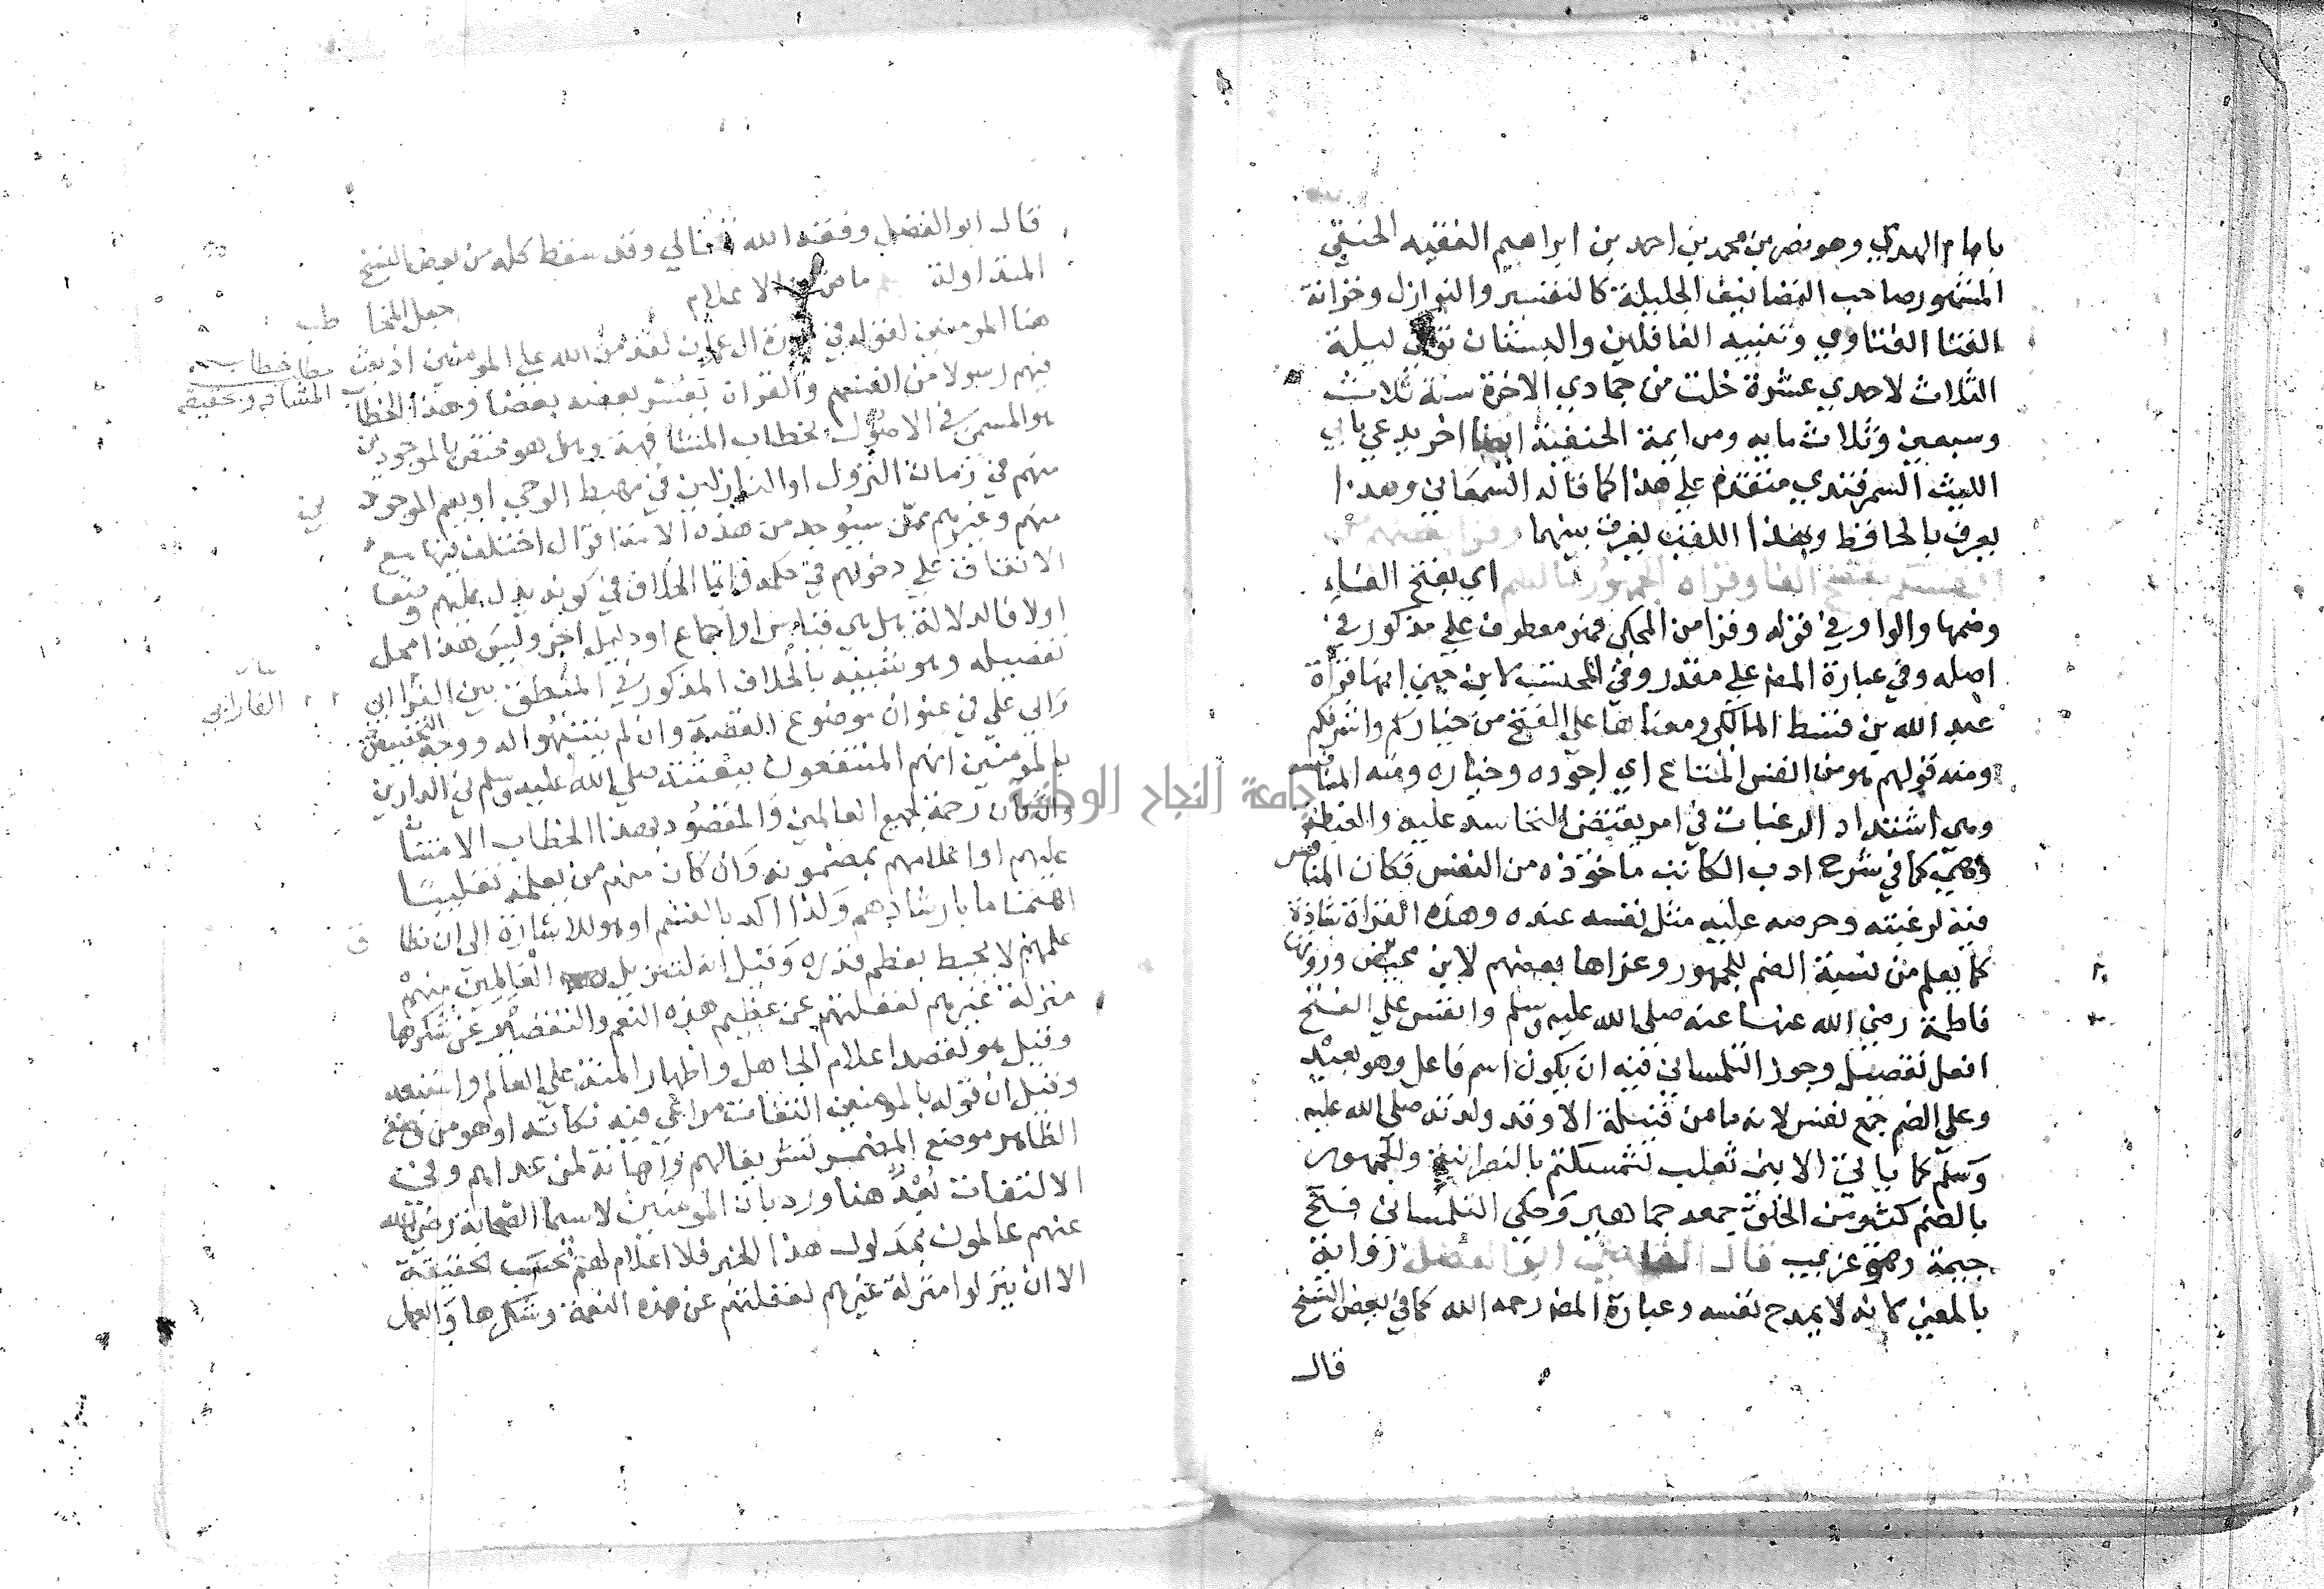 بامام الهدي وهو نصر بن محمد بن احمد بن ابراهيم الفقيه الحنفي
المشهور صاحب التصانيف الجليلة كالتفسير والنوازل وخزانة
الفتاوي وتنبيه الغافلين والبستان توفي ليلة
الثلاث لاحدي عشرة خلت من جمادي الاخرة سنة ثلاث
وسبعين وثلاث مايه ومن ايمة الحنفية ايضا اخر يدعي بابي
الليث السمرقندي متقدم علي هذا كما قاله السمعاني وهذا
يعرف بالحافظ وبهذا اللقب يفرق بينهما وقرا بعضهم من
انفسكم بفتح الفا وقراه الجمهور بالضم اي بفتح الفاء
وضمها والواو في قوله وقرا من المحكي فهو معطوف علي مذكور في
اصله وفي عبارة المص علي مقدر وفي المحتسب لابن جني انها قراة
عبد الله بن قسيط المكي ومعناها علي الفتح من خياركم واشرفكم
ومنه قولهم هو من انفس المتاع اي اجوده وخياره ومنه المنافسه
وهي اشتداد الرغبات في امر يقتضي التحاسد عليه والغبطة
وهي كما في شرح ادب الكاتب ماخوذه من النفس فكان المنافس
فيه لرغبته وحرصه عليه مثل نفسه عنده وهذه القراة شاذة
كما يعلم من نسبة الضم للجمهور وعزاها بعضهم لابن محيصن وروتها
فاطمة رضي الله عنها عنه صلي الله عليه وسلم وانفس علي الفتح
افعل تفضيل وجوز التلمساني فيه ان يكون اسم فاعل وهو بعيد
وعلي الضم جمع نفس لانه ما من قبيلة الا وقد ولدته صلي الله عليه
وسلم كما ياتي الا بني ثعلب لتمسكهم بالنصرانية والجمهور
بالضم كثير من الخلق جمعه جماهير وحكي التلمساني فتح
جيمة وهو غريب قال القاضي ابو الفضل
بالمعني كانه لا يمدح نفسه وعبارة المص رحمه الله كما في بعض النسخ
قال
قال ابو الفضل وفقه الله تعالي وقد سقط كله من بعض النسخ
المتداولة
الاعلام
جعل المخاطب
هنا المومنين لقوله في سورة ال عمران لقد من الله علي المومنين اذ بعث
فيهم رسولا من انفسهم والقران يفسر بعضه بعضا وهذا الخطاب
هو المسمي في الاصول بخطاب المشافهة وهل هو مختص بالموجودين
منهم في زمان النزول او النازلين في مهبط الوحي او يعم الموجود
منهم وغيرهم ممن سيوجد من هذه الامة اقوال اختلف فيها مع
الاتفاق علي دخولهم في حكمه وانما الخلاف في كونه يدل عليهم وضعا
اولا فالدلالة هل هي قياس او اجماع او دليل اخر وليس هذا محل
تفصيله وهو شبيه بالخلاف المذكور في المنطق بين الفرابي
وابي علي في عنوان موضوع القضية وان لم ينتبهوا له ووجه التخصيص
بالمومنين انهم المنتفعون ببعثته صلي الله عليه وسلم في الدارين
وان كان رحمة لجميع العالمين والمقصود بهذا الخطاب الامتنان
عليهم او اعلامهم بمضمونه وان كان منهم من يعلمه تغليبا
اهتماما بارشادهم ولذا اكد بالقسم او هو للاشارة الي ان نطاق
علمهم لا يحيط بعظم قدره وقيل انه لتنزيل العالمين منهم
منزلة غيرهم لغفلتهم عن عظيم هذه النعم والتقصير عن شكرها
وقيل هو لقصد اعلام الجاهل واظهار المنة علي العالم واستبعد
وقيل ان قوله بالمومنين التفات مراعي فيه نكاته او هو من وضع
الظاهر موضع المضمر تشريفا لهم واهانة لمن عداهم وفي
الالتفات بعد هنا ورد بان المومنين لاسيما الصحابة رضي الله
عنهم عالمون بمدلول هذا الخبر فلا اعلام لهم بحسب الحقيقة
الا ان ينزلوا منزلة غيرهم لغفلتهم عن هذه النعمة وشكرها والعمل
مطلب خطاب
المشافهة وتحقيقه
الفارابي
جامعة النجاح الوطنية